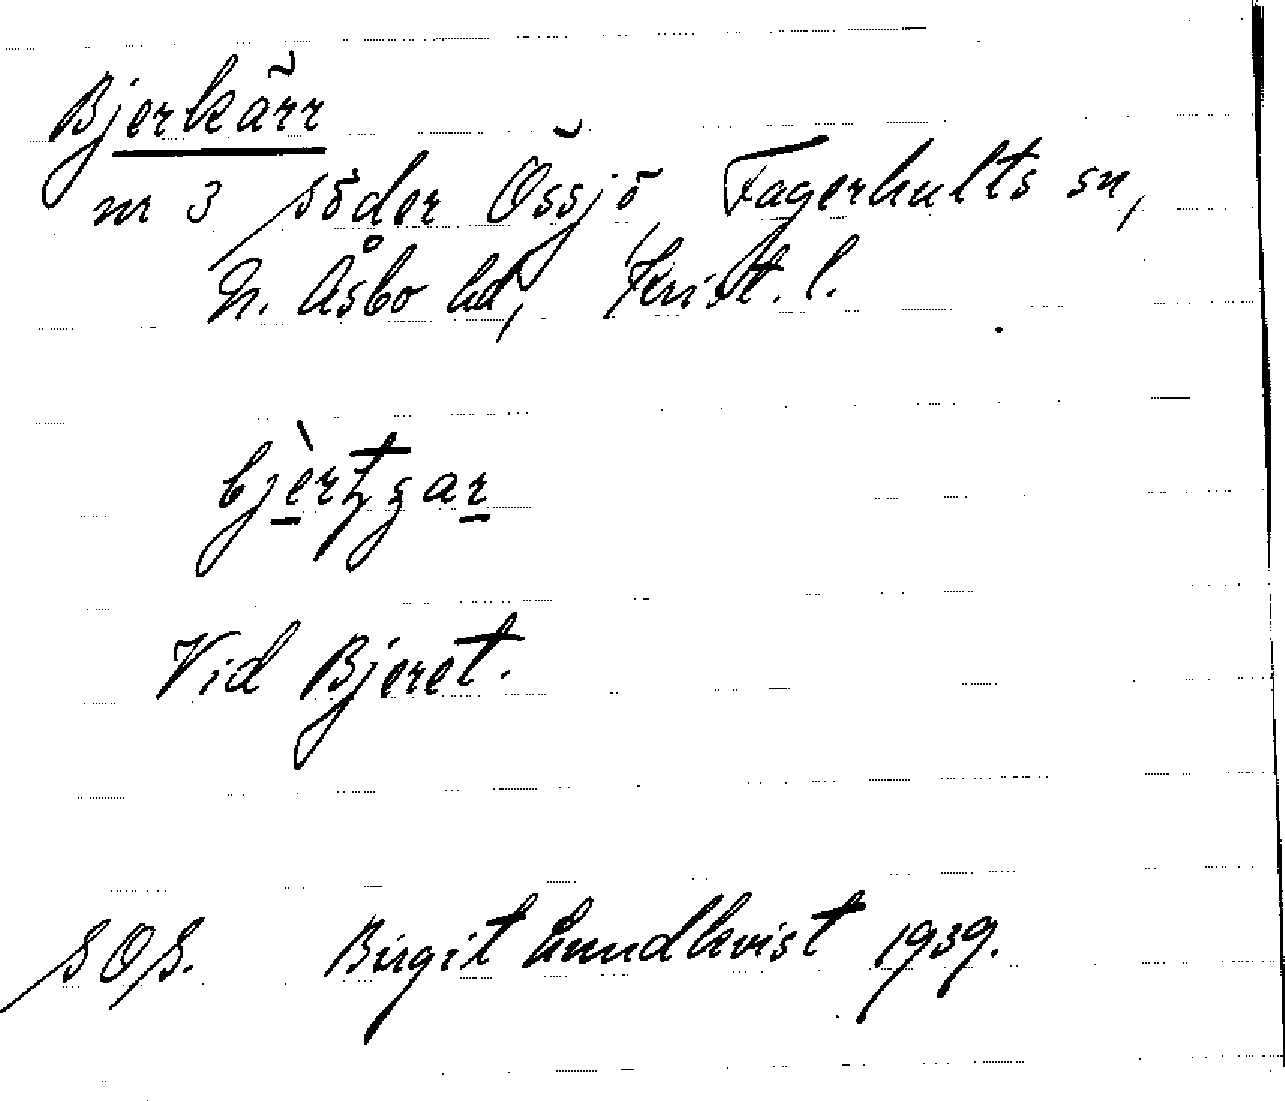 Bjerkärr
nr 3 Söder Össjö, Fagerhults sn,
N. Åsbo hd, Krist. l.
Vid Bjeret.
SOS. Birgit Lundkvist 1939.